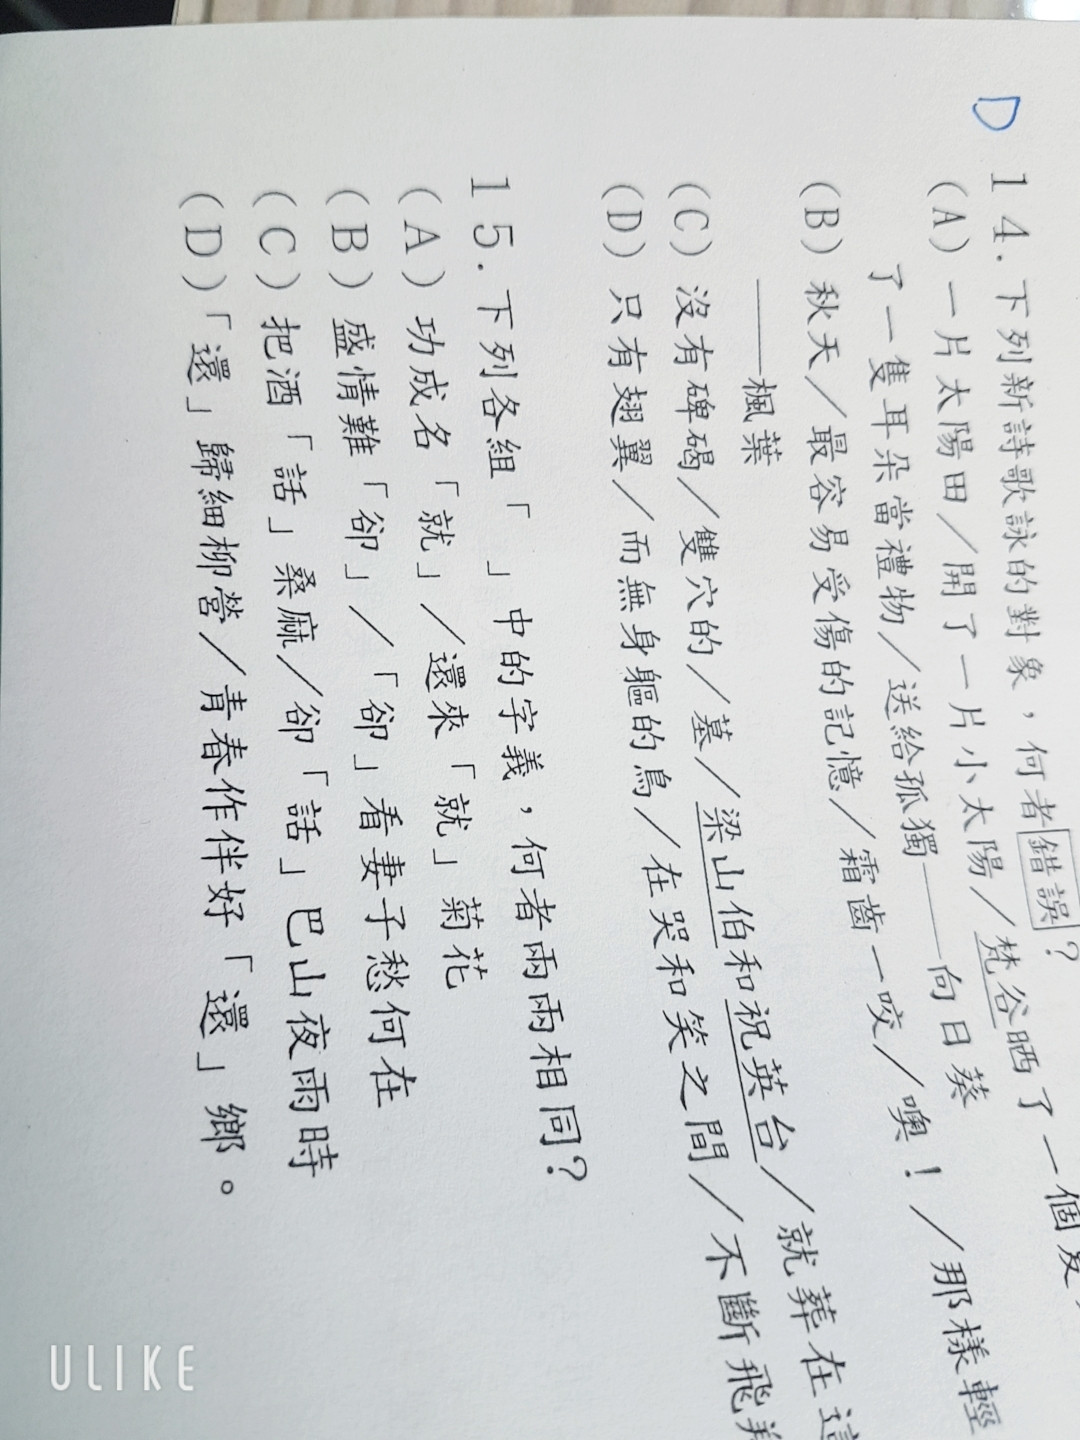 D
14.下列新詩歌詠的對象，何者錯誤？
(A) 一片太陽田／開了一片小太陽／梵谷晒了一個夏
了一隻耳朵當禮物／送給孤獨——向日葵
(B) 秋天／最容易受傷的記憶／霜齒一咬／噢！／那樣輕
——楓葉
(C) 沒有碑碣／雙穴的／墓／梁山伯和祝英台／就葬在這
(D) 只有翅翼／而無身軀的鳥／在哭和笑之間／不斷飛翔
15.下列各組「 」中的字義，何者兩兩相同？
(A) 功成名「就」／還來「就」菊花
(B) 盛情難「卻」／「卻」看妻子愁何在
(C) 把酒「話」桑麻／卻「話」巴山夜雨時
(D)「還」歸細柳營／青春作伴好「還」鄉。
ULIKE